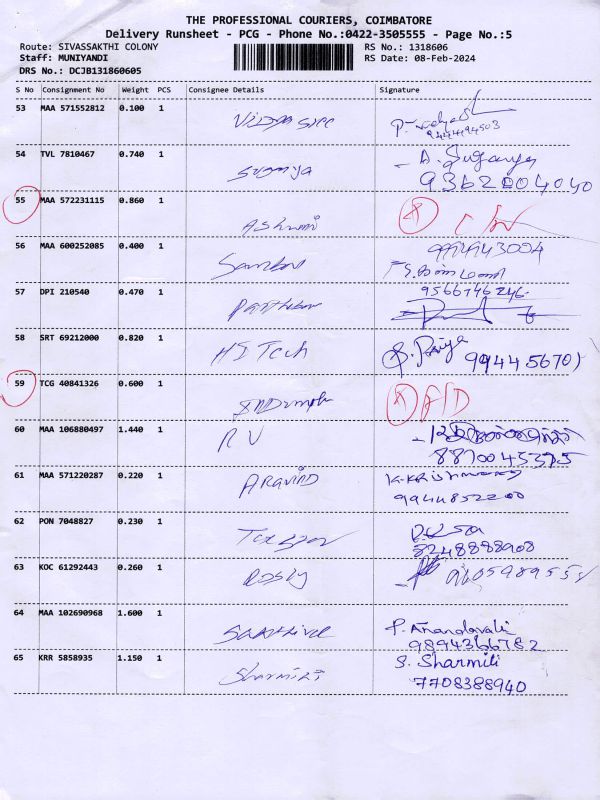 THE PROFESSIONAL COURIERS, COIMBATORE
Delivery Runsheet - PCG - Phone No.:0422-3505555 - Page No.:5
Route: SIVASSAKTHI COLONY
RS No.: 1318606
Staff: MUNIYANDI
RS Date: 08-Feb-2024
DRS No.: DCJB131860605
S No Consignment No Weight PCS Consignee Details Signature
53 MAA 571552812 0.100 1
9444194503
54 TVL 7810467 0.740 1 Sugnya D. Suganya
9362004040
55 MAA 572231115 0.860 1 Ashwini
56 MAA 600252085 0.400 1 9929943004
57 DPI 210540 0.470 1 Parthiban 9566746246
58 SRT 69212000 0.820 1 HI Tech S. Priya 9944556701
59 TCG 40841326 0.600 1
60 MAA 106880497 1.440 1 R V
8870045375
61 MAA 571220287 0.220 1 Aravind
9944852200
62 PON 7048827 0.230 1
8248888908
63 KOC 61292443 0.260 1 Rosly
64 MAA 102690968 1.600 1 Sakthivel P. Anandavali
9894366782
65 KRR 5858935 1.150 1 Sharmiti S. Sharmili
7708388940